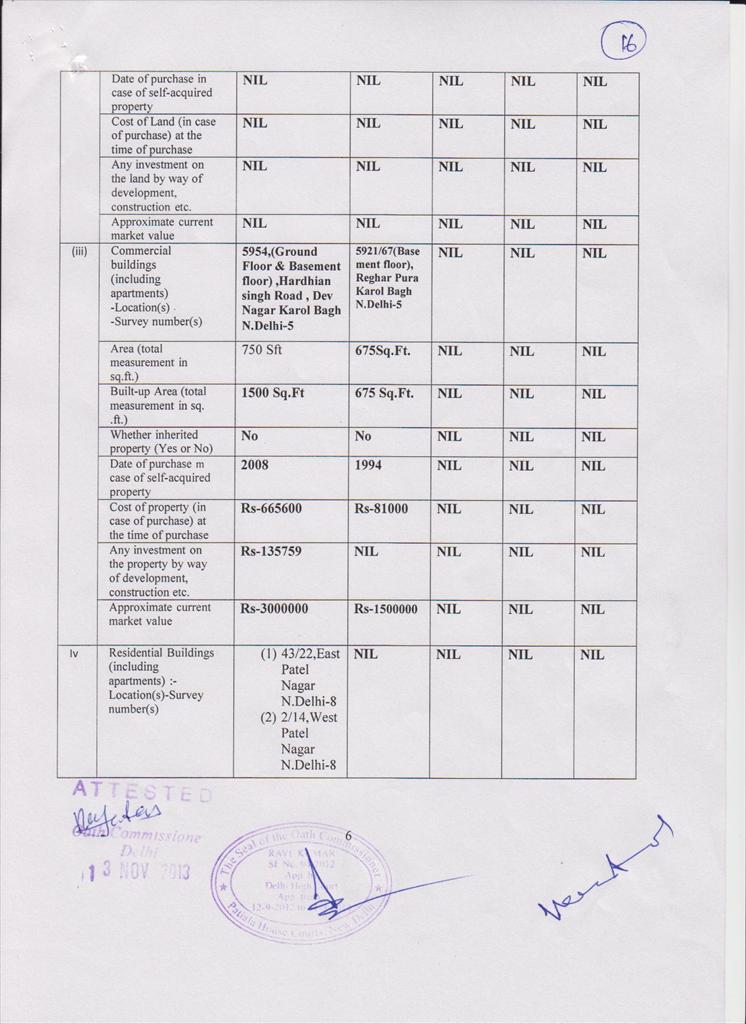 16
Date of purchase in
case of self-acquired
property
NIL NIL NIL NIL NIL
Cost of Land (in case
of purchase) at the
time of purchase
NIL NIL NIL NIL NIL
Any investment on
the land by way of
development,
construction etc.
NIL NIL NIL NIL NIL
Approximate current
market value
NIL NIL NIL NIL NIL
(iii)
Commercial
buildings
(including
apartments)
-Location(s)
-Survey number(s)
5954,(Ground
Floor & Basement
floor) ,Hardhian
singh Road , Dev
Nagar Karol Bagh
N.Delhi-5
5921/67(Base
ment floor),
Reghar Pura
Karol Bagh
N.Delhi-5
NIL NIL NIL
Area (total
measurement in
sq.ft.)
750 Sft 675Sq.Ft. NIL NIL NIL
Built-up Area (total
measurement in sq.
.ft.)
1500 Sq.Ft 675 Sq.Ft. NIL NIL NIL
Whether inherited
property (Yes or No)
No No NIL NIL NIL
Date of purchase m
case of self-acquired
property
2008 1994 NIL NIL NIL
Cost of property (in
case of purchase) at
the time of purchase
Rs-665600 Rs-81000 NIL NIL NIL
Any investment on
the property by way
of development,
construction etc.
Rs-135759 NIL NIL NIL NIL
Approximate current
market value
Rs-3000000 Rs-1500000 NIL NIL NIL
Iv
Residential Buildings
(including
apartments) :-
Location(s)-Survey
number(s)
(1) 43/22,East
Patel
Nagar
N.Delhi-8
(2) 2/14,West
Patel
Nagar
N.Delhi-8
NIL NIL NIL NIL
ATTESTED
Oath Commissione
Delhi
13 NOV 2013
6
The Seal of the Oath Commissioner
RAVI KUMAR
Delhi High Court
Patiala House Courts, New Delhi